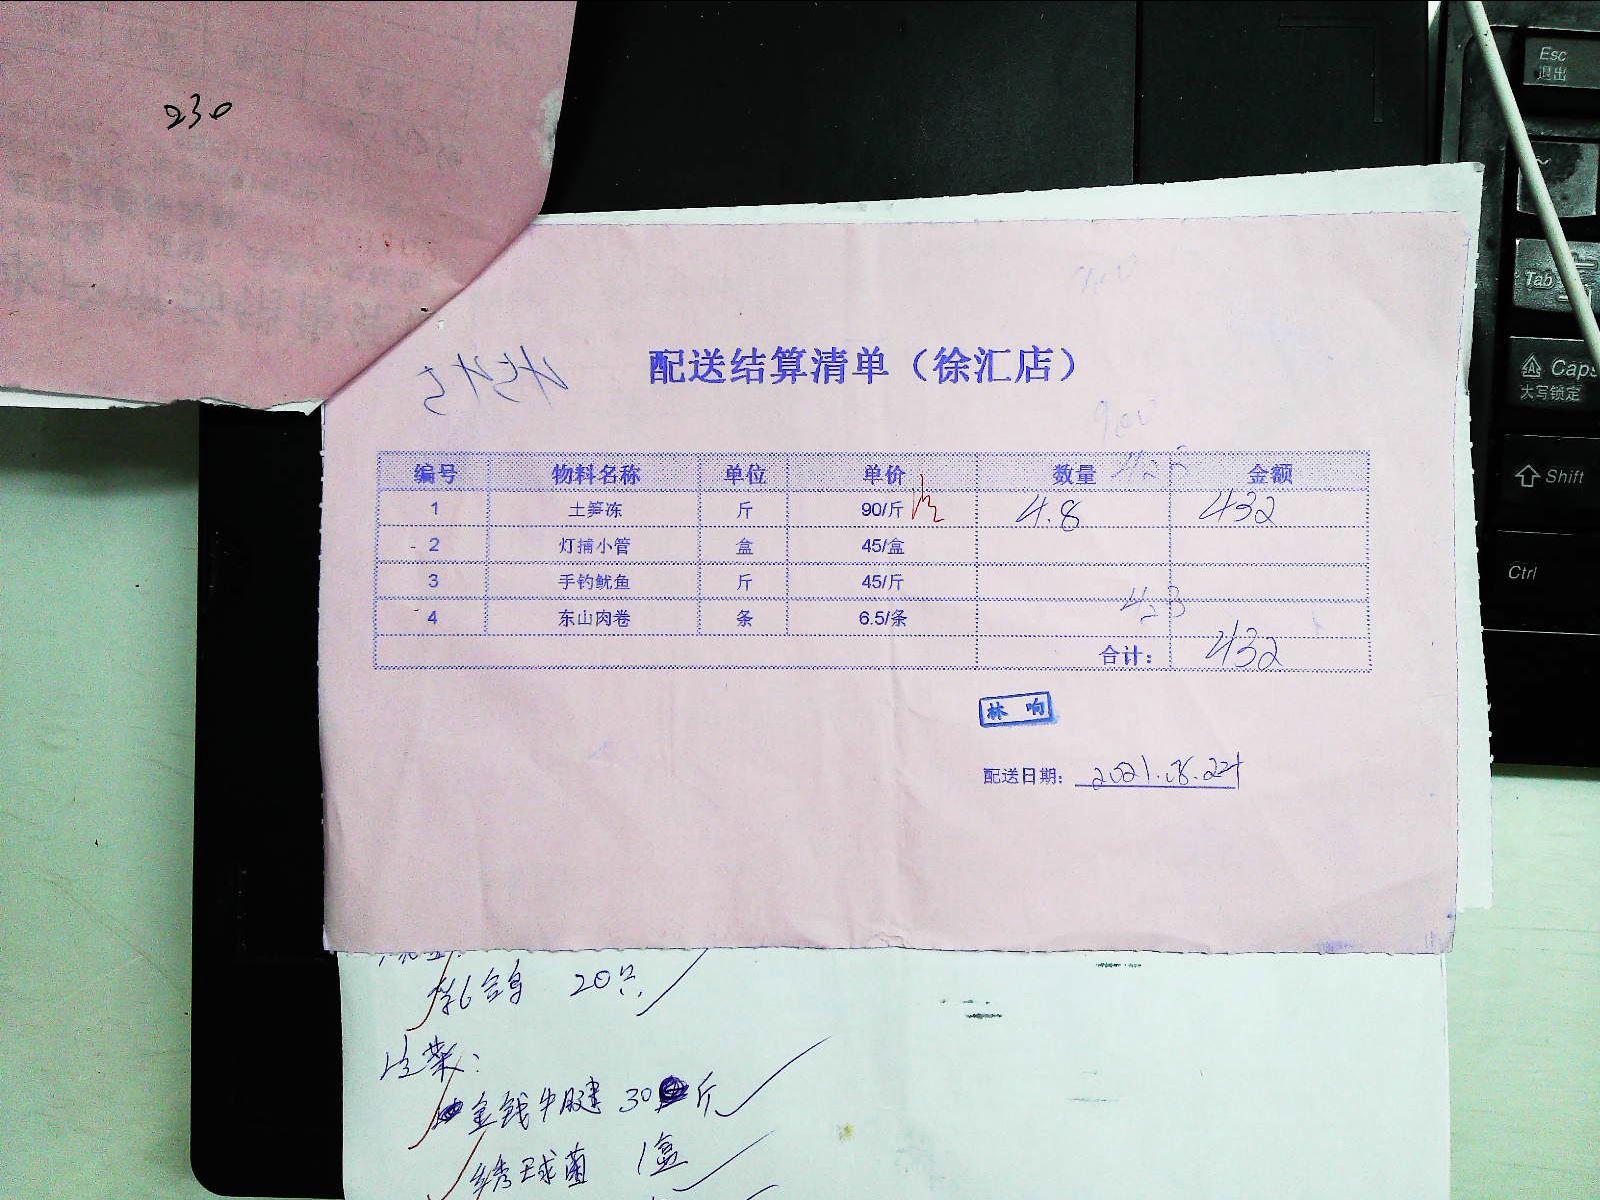 230
Esc
退出
Tab
Caps
大写锁定
Shift
Ctrl
配送结算清单（徐汇店）
编号 物料名称 单位 单价 数量 金额
1 土笋冻 斤 90/斤 4.8 432
2 灯捕小管 盒 45/盒
3 手钓鱿鱼 斤 45/斤
4 东山肉卷 条 6.5/条
合计： 432
林响
配送日期：2021.08.22
乳鸽 20只
金钱牛腱 30斤
绣球菌 1盒